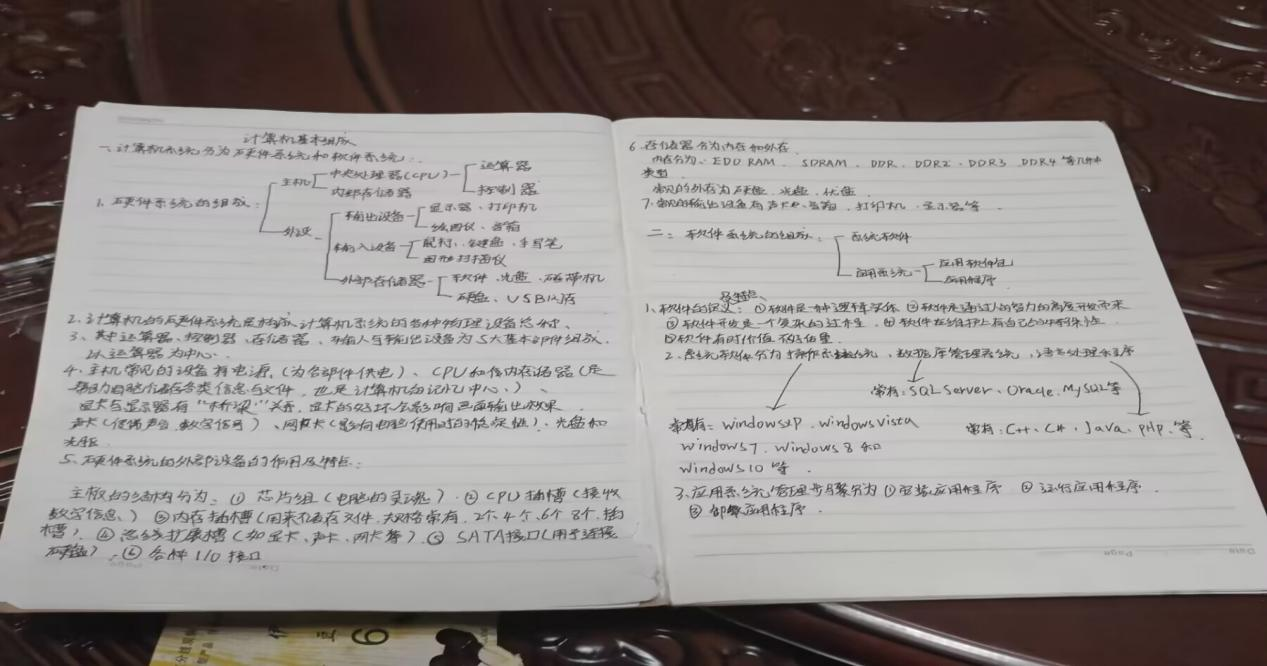 计算机基本组成
一、计算机系统分为硬件系统和软件系统:
1. 硬件系统的组成:
主机
中央处理器(CPU)
运算器
控制器
内部存储器
外设
输出设备
显示器、打印机
绘图仪、音箱
输入设备
鼠标、键盘、手写笔
图形扫描仪
外部存储器
软件、光盘、磁带机
硬盘、USB闪存
2. 计算机的硬件系统是构成计算机系统的各种物理设备总称、
3、其中运算器、控制器、存储器、输入与输出设备为5大基本部件组成.
以运算器为中心.
4. 主机常见的设备有电源、(为各部件供电)、CPU和内存储器(是
帮助电脑储存各类信息与文件,也是计算机的记忆中心、)、
显卡与显示器有"桥梁"关系,显卡的好坏会影响画面输出效果
声卡(传播声音、数字信号)、网卡(影响电脑使用时的稳定性)、光盘和
光驱.
5、硬件系统的外部设备的作用及特点:
主板的结构分为:① 芯片组(电脑的灵魂)、② CPU插槽(接收
数字信息、)③内存插槽(用来储存文件,规格常有,2个、4个、6个 8个,插
槽)、④ 总线扩展槽(加显卡、声卡、网卡等)、⑤ SATA接口(用于连接
硬盘)、⑥ 各种I/O接口
Date
Page
6. 存储器分为内存和外存.
内存分为、EDO RAM、SDRAM、DDR、DDR2、DDR3、DDR4 等几种
类型
常见的外存为硬盘、光盘、优盘.
7. 常见的输出设备有声卡、音箱、打印机、显示器等.
二: 软件系统的组成:
系统软件
应用系统
应用软件包
应用程序
及特点、
1、软件的定义:①软件是一种逻辑实体 ②软件是通过人的智力的高度开发而来
③ 软件开发是一个复杂的过程 ④ 软件在维护上有自己的特殊性
⑤软件有时价值不可估量
2. 系统软件分为操作系统,数据库管理系统,语言处理程序
常有:SQL Server、Oracle、MySQL等
常有:windowsXP、windows Vista
windows7、windows 8 和
windows10 等.
常有:C++、C#、Java、PHP、等
3. 应用系统管理步骤分为 ①安装应用程序 ② 运行应用程序.
③ 卸载应用程序.
Page
Date
6